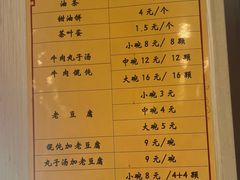 油茶
甜油饼 4元/个
茶叶蛋 1.5元/个
牛肉丸子汤
牛肉馄饨
小碗 8元/ 8颗
中碗 12元/ 12颗
大碗 16元/ 16颗
老豆腐
小碗 3元
中碗 4元
大碗 5元
馄饨加老豆腐 9元/碗
丸子汤加老豆腐 9元/碗
小碗 8元 /4+4颗